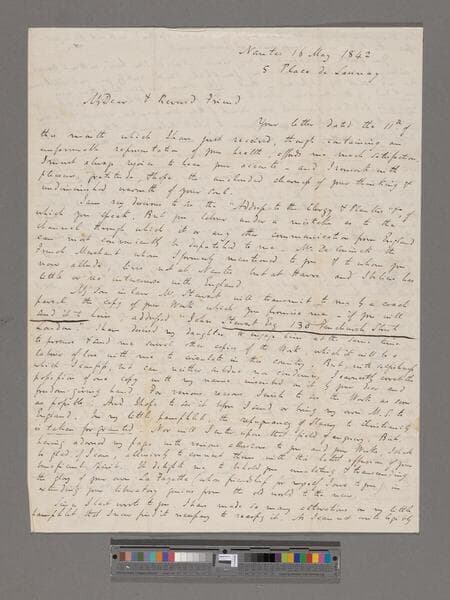 Nantes 16 May 1842
5 Place de Launay
My Dear & Revered Friend
Your letter dated the 11th of
this month which I have just received, though containing an
unfavorable representation of your health, affords me much satisfaction.
I must always rejoice to hear your accents – and I remark with
pleasure, gratitude, & hope the unclouded clearness of your thinking &
undiminished warmth of your soul.
I am very desirous to see the "Address to the Clergy & Planters &c, of
which you speak. But you labour under a mistake as to the
channel through which it or any other communication from England
can most conveniently be dispatched to me. Mr. the
French Merchant whom I formerly mentioned to you & to whom you
now allude, lives not at Nantes but at Havre and I believe has
little or no intercourse with England.
My Son in law Mr Stewart will transmit to me by a coach
parcel the copy of your Work which you promise me – if you will
send it to him: addressed "John Stewart Esq 138 Fenchurch Street
London". I have desired my daughter to engage him at the same time
to procure & send me several other copies of the Work, which it will be a
labour of love with me to circulate in this country. But, with selfishness
which I can neither subdue nor condemn, I earnestly covet the
possession of one copy with my name inscribed in it by your dear and
freedom-giving hand. For various reasons I wish to see the Work as soon
as possible. And I hope to see it before I send or bring my own M.S. to
England. In my little pamphlet, the repugnancy of Slavery to Christianity
is taken for granted. Nor will I enter upon that field of enquiry. But,
having adorned my pages with various allusions to you and your Works, I shall
be glad, if I can, allusively to connect them with this latest effusion of your
beneficent spirit. It delights me to behold you emulating & transcending
the glory of your own La Fayette (whose friendship for myself I owe to you), in
extending your liberating genius from the old world to the new.
Since I last wrote to you I have made so many alterations in my little
pamphlet that I now find it necessary to recopy it. As I can not write legibly